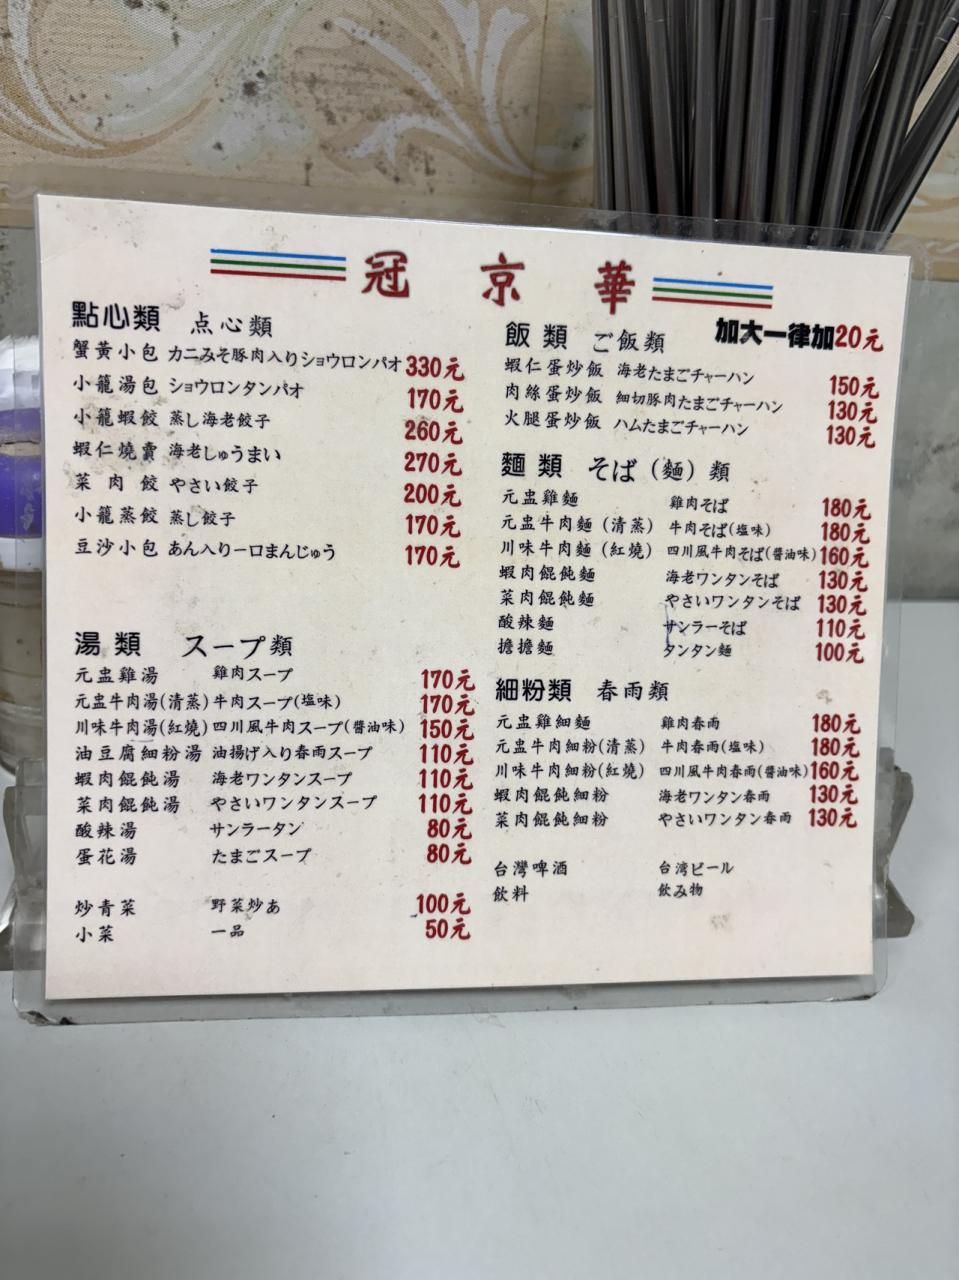 冠京華
點心類 点心類
蟹黃小包 カニみそ豚肉入りショウロンパオ 330元
小籠湯包 ショウロンタンパオ 170元
小籠蝦餃 蒸し海老餃子 260元
蝦仁燒賣 海老しゅうまい 270元
菜肉餃 やさい餃子 200元
小籠蒸餃 蒸し餃子 170元
豆沙小包 あん入り一口まんじゅう 170元
湯類 スープ類
元盅雞湯 雞肉スープ 170元
元盅牛肉湯(清蒸) 牛肉スープ(塩味) 170元
川味牛肉湯(紅燒) 四川風牛肉スープ(醬油味) 150元
油豆腐細粉湯 油揚げ入り春雨スープ 110元
蝦肉餛飩湯 海老ワンタンスープ 110元
菜肉餛飩湯 やさいワンタンスープ 110元
酸辣湯 サンラータン 80元
蛋花湯 たまごスープ 80元
炒青菜 野菜炒あ 100元
小菜 一品 50元
飯類 ご飯類 加大一律加20元
蝦仁蛋炒飯 海老たまごチャーハン 150元
肉絲蛋炒飯 細切豚肉たまごチャーハン 130元
火腿蛋炒飯 ハムたまごチャーハン 130元
麵類 そば(麵)類
元盅雞麵 雞肉そば 180元
元盅牛肉麵(清蒸) 牛肉そば(塩味) 180元
川味牛肉麵(紅燒) 四川風牛肉そば(醬油味) 160元
蝦肉餛飩麵 海老ワンタンそば 130元
菜肉餛飩麵 やさいワンタンそば 130元
酸辣麵 サンラーそば 110元
擔擔麵 タンタン麵 100元
細粉類 春雨類
元盅雞細麵 雞肉春雨 180元
元盅牛肉細粉(清蒸) 牛肉春雨(塩味) 180元
川味牛肉細粉(紅燒) 四川風牛肉春雨(醬油味) 160元
蝦肉餛飩細粉 海老ワンタン春雨 130元
菜肉餛飩細粉 やさいワンタン春雨 130元
台灣啤酒 台湾ビール
飲料 飲み物